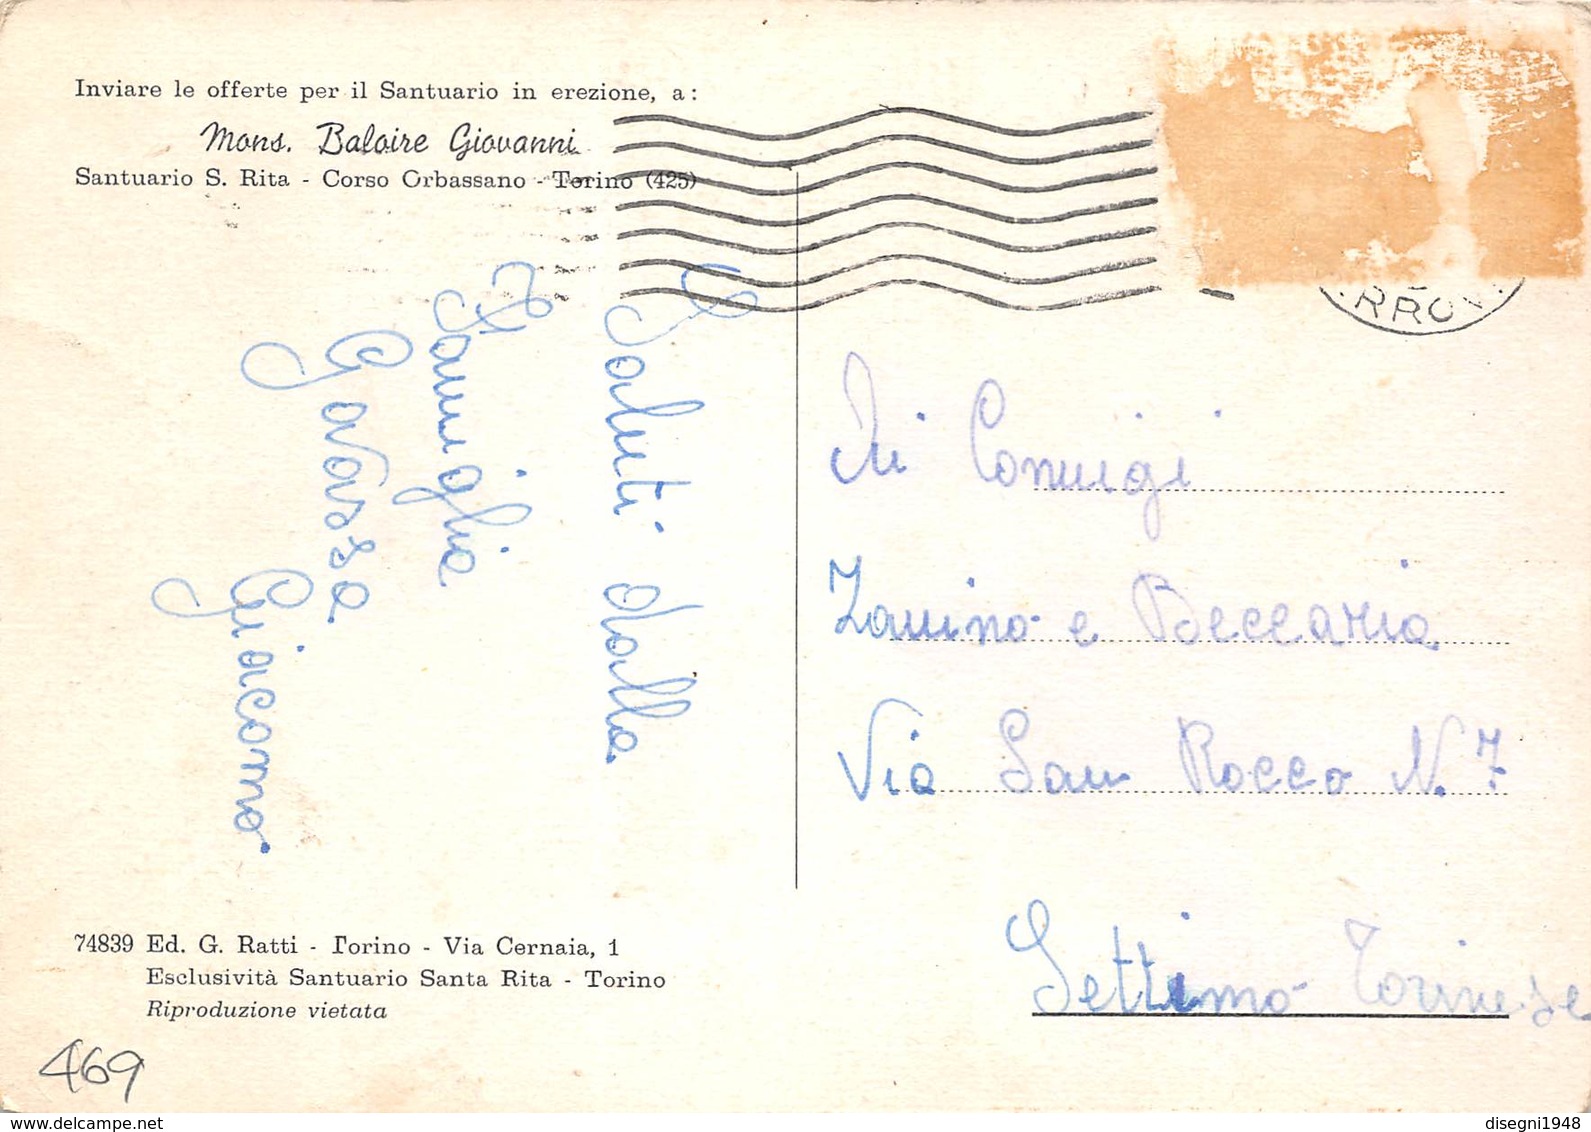 Inviare le offerte per il Santuario in erezione, a:
Mons. Baloire Giovanni
Santuario S. Rita - Corso Orbassano - Torino (425)
Saluti dalla
Famiglia
Gavossa
Giacomo
74839 Ed. G. Ratti - Torino - Via Cernaia, 1
Esclusività Santuario Santa Rita - Torino
Riproduzione vietata
469
Ai Coniugi
Zanino e Beccaria
Via San Rocco N. 7
Settimo Torinese
disegni1948
www.delcampe.net